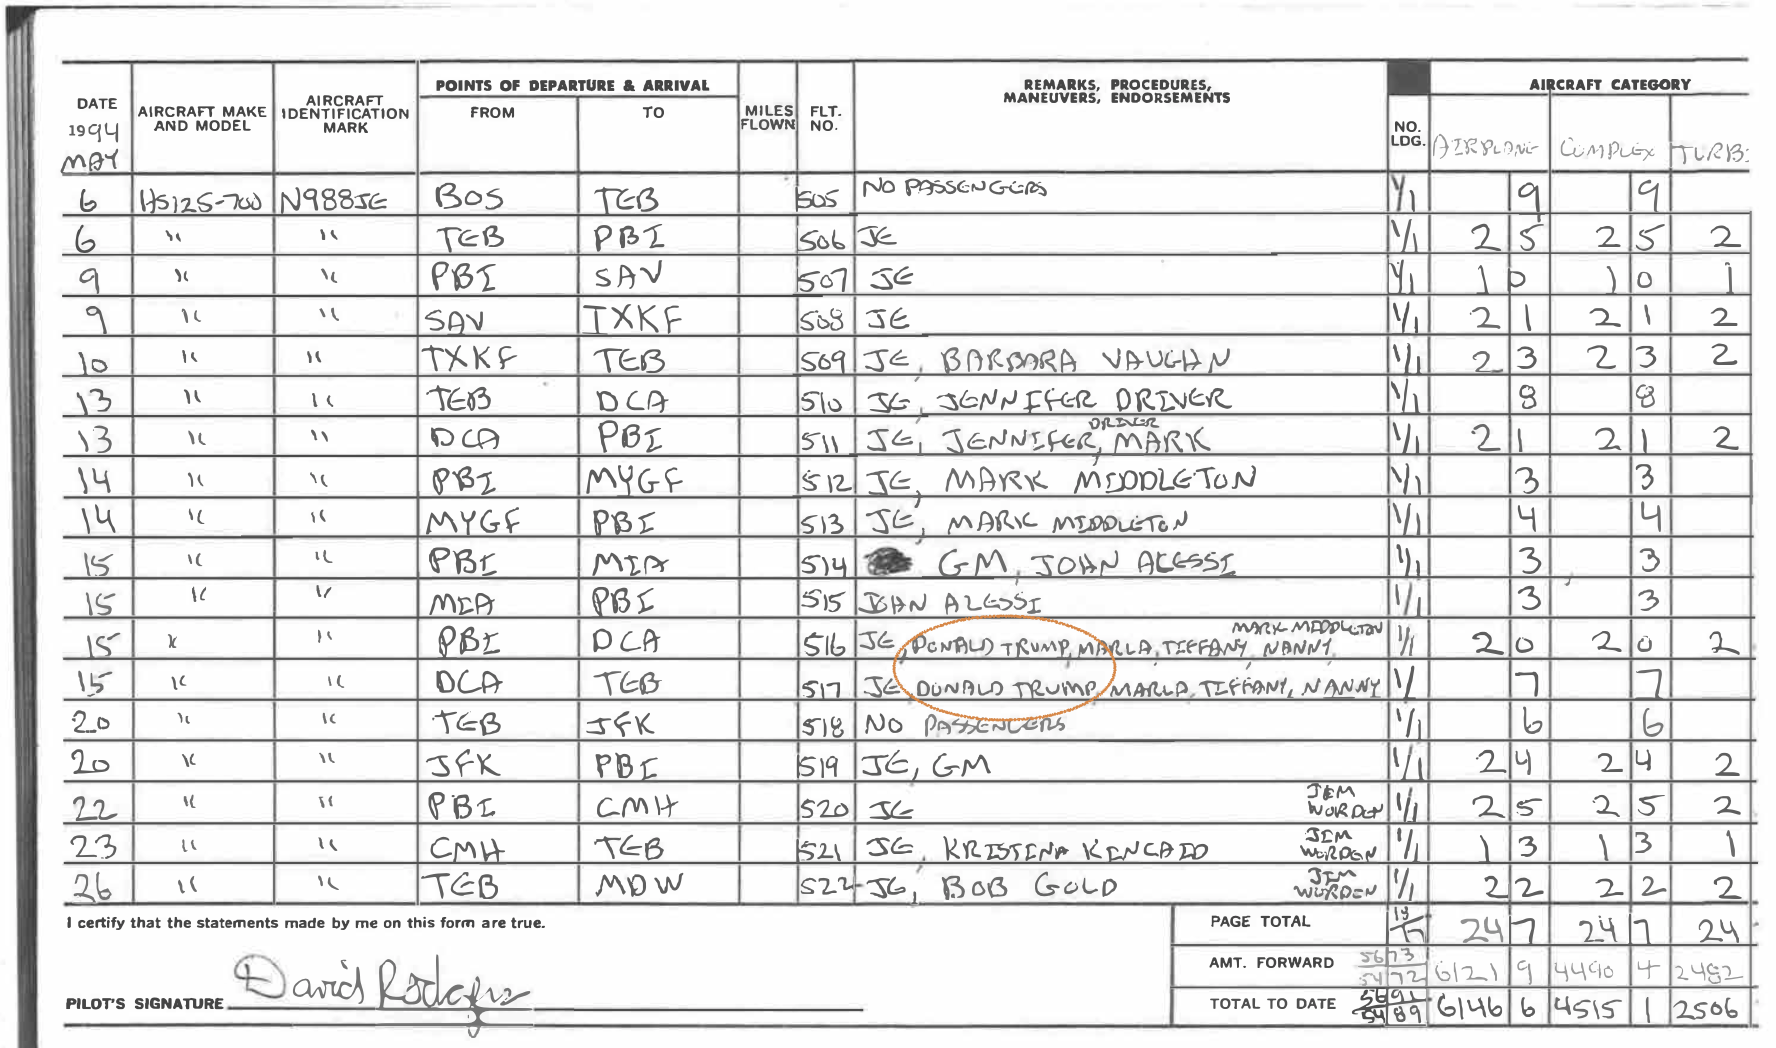 DATE 1994 MAY AIRCRAFT MAKE AND MODEL AIRCRAFT IDENTIFICATION MARK POINTS OF DEPARTURE & ARRIVAL FROM TO MILES FLOWN FLT. NO. REMARKS, PROCEDURES, MANEUVERS, ENDORSEMENTS NO. LDG. AIRCRAFT CATEGORY AIRPLANE COMPLEX TURB
6 HS125-700 N988JE BOS TEB 505 NO PASSENGERS 1/1 9 9
6 " " TEB PBI 506 JE 1/1 2 5 2 5 2
9 " " PBI SAV 507 JE 1/1 1 0 1 0 1
9 " " SAV TXKF 508 JE 1/1 2 1 2 1 2
10 " " TXKF TEB 509 JE, BARBARA VAUGHN 1/1 2 3 2 3 2
13 " " TEB DCA 510 JE, JENNIFER DRIVER 1/1 8 8
13 " " DCA PBI 511 JE, JENNIFER DRIVER, MARK 1/1 2 1 2 1 2
14 " " PBI MYGF 512 JE, MARK MIDDLETON 1/1 3 3
14 " " MYGF PBI 513 JE, MARK MIDDLETON 1/1 4 4
15 " " PBI MIA 514 GM, JOHN ALESSI 1/1 3 3
15 " " MIA PBI 515 JOHN ALESSI 1/1 3 3
15 " " PBI DCA 516 JE, DONALD TRUMP, MARLA, TIFFANY, NANNY, MARK MIDDLETON 1/1 2 0 2 0 2
15 " " DCA TEB 517 JE, DONALD TRUMP, MARLA, TIFFANY, NANNY 1/ 7 7
20 " " TEB JFK 518 NO PASSENGERS 1/1 6 6
20 " " JFK PBI 519 JE, GM 1/1 2 4 2 4 2
22 " " PBI CMH 520 JE JIM WORDEN 1/1 2 5 2 5 2
23 " " CMH TEB 521 JE, KRISTINA KINCAID JIM WORDEN 1/1 1 3 1 3 1
26 " " TEB MDW 522 JE, BOB GOLD JIM WORDEN 1/1 2 2 2 2 2
I certify that the statements made by me on this form are true.
PAGE TOTAL 18/17 24 7 24 7 24
AMT. FORWARD 5673 5472 6121 9 4490 4 2482
PILOT'S SIGNATURE David Rodgers
TOTAL TO DATE 5691 5489 6146 6 4515 1 2506